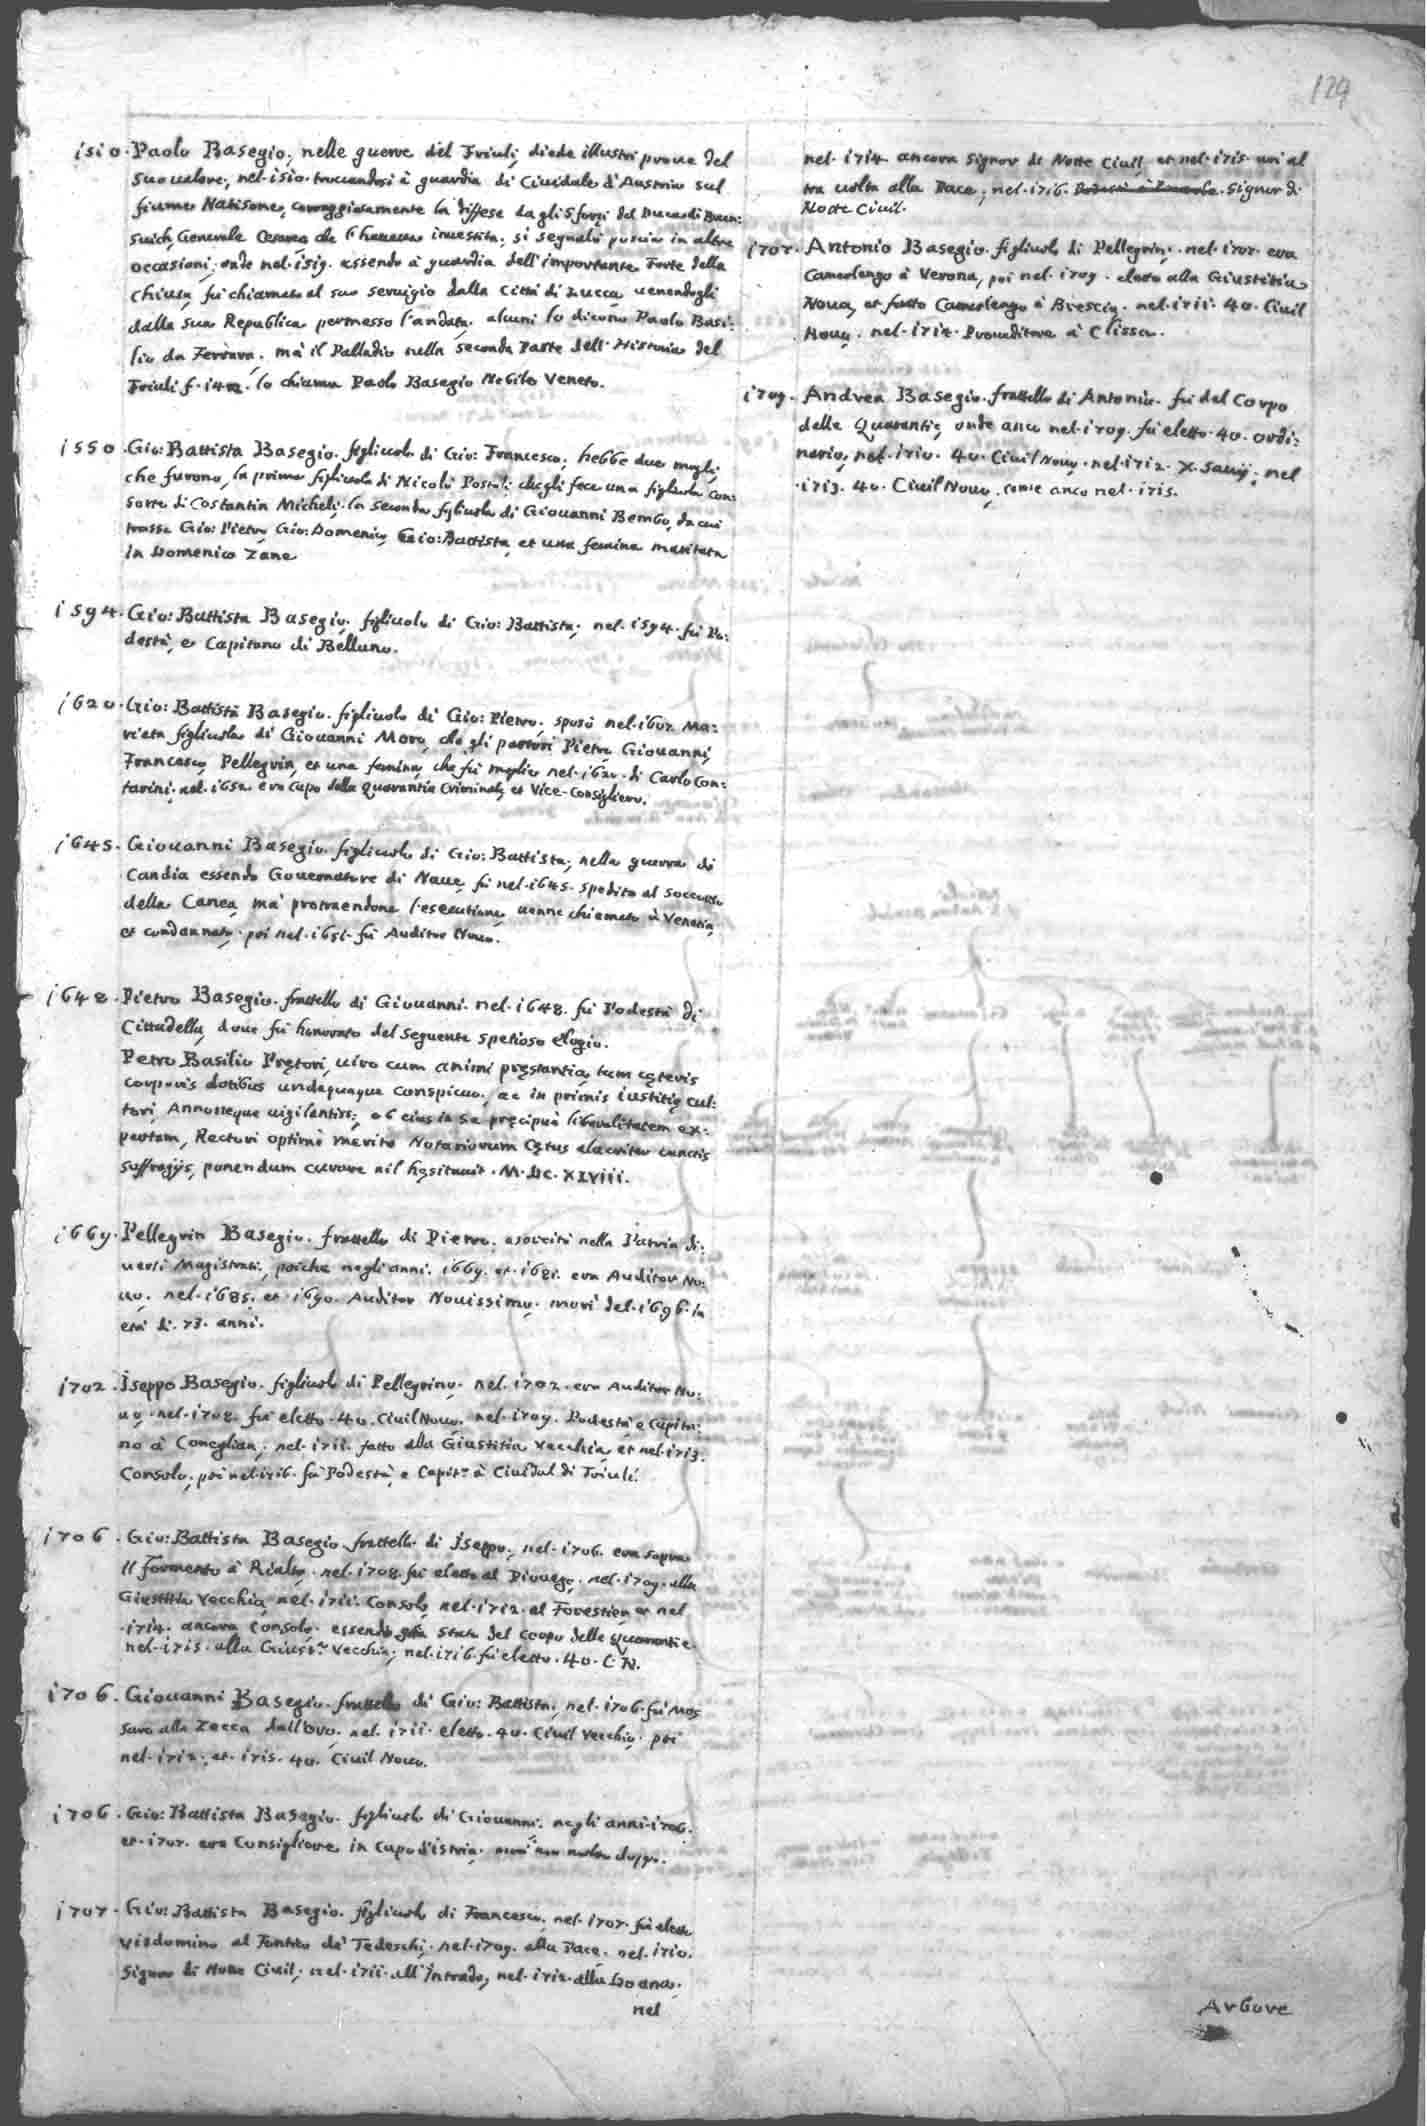 129
1510. Paolo Basegio, nelle guerre del Friuli, diede illustri proue del
suo ualore, nel 1510. trouandosi à guardia di Ciuidale d'Austria sul
fiume Natisone, coraggiosamente la diffese dagli sforzi del Duca di Brun:
suich, Generale Cesareo che l'haueua inuestita. si segnalò poscia in altre
occasioni; onde nel. 1519. essendo à guardia dell'importante Forte della
Chiusa, fù chiamato al suo seruigio dalla Città di Lucca, uenendogli
dalla sua Republica permesso l'andata. alcuni lo dicono Paolo Basi:
lio da Ferrara. mà il Palladio nella seconda Parte dell'Historia del
Friuli f. 142. lo chiama Paolo Basegio Nobile Veneto.
1550. Gio: Battista Basegio. figliuolo di Gio: Francesco, hebbe due mogli,
che furono, la prima figliuola di Nicolò Postoli; che gli fece una figliuola con:
sorte di Costantin Micheli, la seconda figliuola di Giouanni Bembo, da cui
trasse Gio: Pietro, Gio: Domenico, Gio: Battista, et una femina maritata
in Domenico Zane
1594. Gio: Battista Basegio. figliuolo di Gio: Battista, nel. 1594. fù Po:
destà, e Capitano di Belluno.
1620. Gio: Battista Basegio. figliuolo di Gio: Pietro, sposò nel. 1607. Ma:
rieta figliuola di Giouanni Moro, che gli partorì Pietro, Giouanni,
Francesco, Pellegrin, et una femina, che fù moglie nel. 1620. di Carlo Con:
tarini. nel. 1652. era Capo della Quarantia Criminale, et Vice-Consigliero.
1645. Giouanni Basegio. figliuolo di Gio: Battista, nella guerra di
Candia essendo Gouernatore di Naue, fù nel. 1645. spedito al soccorso
della Canea, mà protraendone l'esecutione, uenne chiamato à Venetia,
et condannato. poi nel. 1651. fù Auditor Nouo.
1648. Pietro Basegio. fratello di Giouanni. nel. 1648. fù Podestà di
Cittadella, doue fù honorato del seguente spetioso elogio.
Petro Basilio Prętori, uiro cum animi pręstantia, tum cęteris
corporis dotibus undequaque conspicuo, ac in primis iustitię cul:
tori, Annonęque uigilantiss:, ob eius in se pręcipuè liberalitatem ex:
pertam, Rectori optimè merito Notariorum Cętus alacriter cunctis
suffragijs, ponendum curare nil hęsitauit. M. DC. XLVIII.
1669. Pellegrin Basegio. fratello di Pietro. esercitò nella Patria di:
uersi Magistrati, poiche negli anni. 1669. et. 1681. era Auditor No:
uo. nel. 1685. et. 1690. Auditor Nouissimo. morì del. 1696. in
età di. 73. anni.
1702. Iseppo Basegio. figliuolo di Pellegrino. nel. 1702. era Auditor No:
uo. nel. 1708. fù eletto. 40. Ciuil Nouo. nel. 1709. Podestà e Capita:
no à Coneglian. nel. 1711. fatto alla Giustitia Vecchia, et nel. 1713.
Consolo. poi nel. 1716. fù Podestà e Capit.º à Ciuidal di Friuli.
1706. Gio: Battista Basegio. fratello di Iseppo, nel. 1706. era sopra
il Formento à Rialto. nel. 1708. fù eletto al Piouego. nel. 1709. alla
Giustitia Vecchia, nel. 1711. Consolo, nel. 1712. al Forestier, et nel
1714. ancora Consolo. essendo già stato del Corpo delle Quarantie.
nel. 1715. alla Giust.ª Vecchia; nel. 1716. fù eletto. 40. C. N.
1706. Giouanni Basegio. fratello di Gio: Battista, nel. 1706. fù Mas
saro alla Zecca dall'oro. nel. 1711. eletto. 40. Ciuil Vecchio. poi
nel. 1712. et. 1715. 40. Ciuil Nouo.
1706. Gio: Battista Basegio. figliuolo di Giouanni. negli anni. 1706.
et. 1707. era Consigliere in Capo d'Istria.
1707. Gio: Battista Basegio. figliuolo di Francesco, nel. 1707. fù eletto
Visdomino al Fontico de' Tedeschi. nel. 1709. alla Pace. nel. 1710.
Signor di Notte Ciuil; nel. 1711. all'Intrade, nel. 1712. alla Doana.
nel
nel. 1714. ancora Signor di Notte Ciuil, et nel. 1715. un'al
tra uolta alla Pace; nel. 1716. Signor di
Notte Ciuil.
1707. Antonio Basegio. figliuolo di Pellegrin. nel. 1707. era
Camerlengo à Verona, poi nel. 1709. eletto alla Giustitia
Noua, et fatto Camerlengo à Brescia. nel. 1711. 40. Ciuil
Nouo. nel. 1712. Proueditore à Clissa.
1709. Andrea Basegio. fratello di Antonio. fù del Corpo
delle Quarantie, onde anco nel. 1709. fù eletto. 40. ordi:
nario, nel. 1710. 40. Ciuil Nouo. nel. 1712. X. Sauij; nel
1713. 40. Ciuil Nouo, come anco nel. 1715.
Arbore